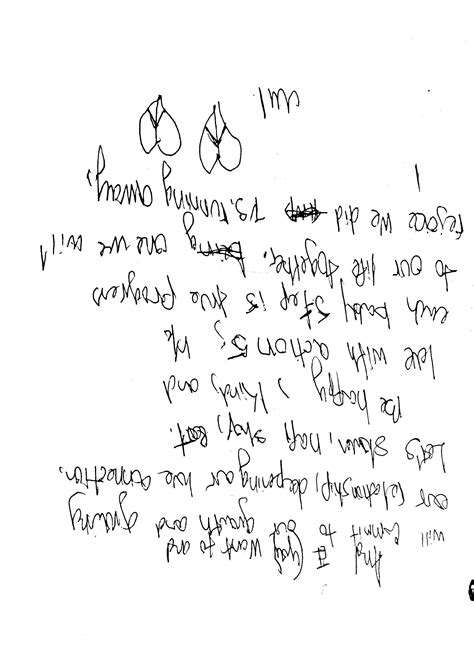 And I want to and
will commit to our growth and growing
our relationship, deepening our love connection.
Let's
Be happy, kind, and
love with actions,
each baby step is true progress
to our life together. one we will
rejoice we did vs. running away,